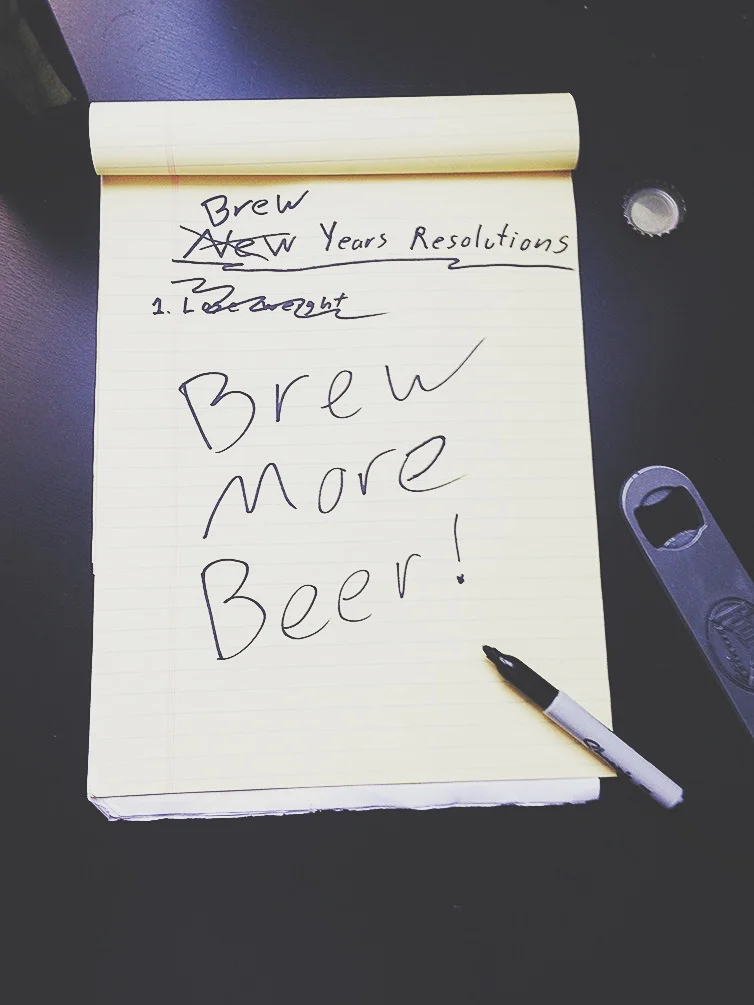 Brew
New Years Resolutions
1. Lose weight
Brew
More
Beer!